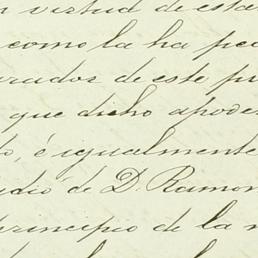 virtud de esta
como la ha ped
de este pr
que dicho apoder
é igualmente
de D. Ramon
principio de la